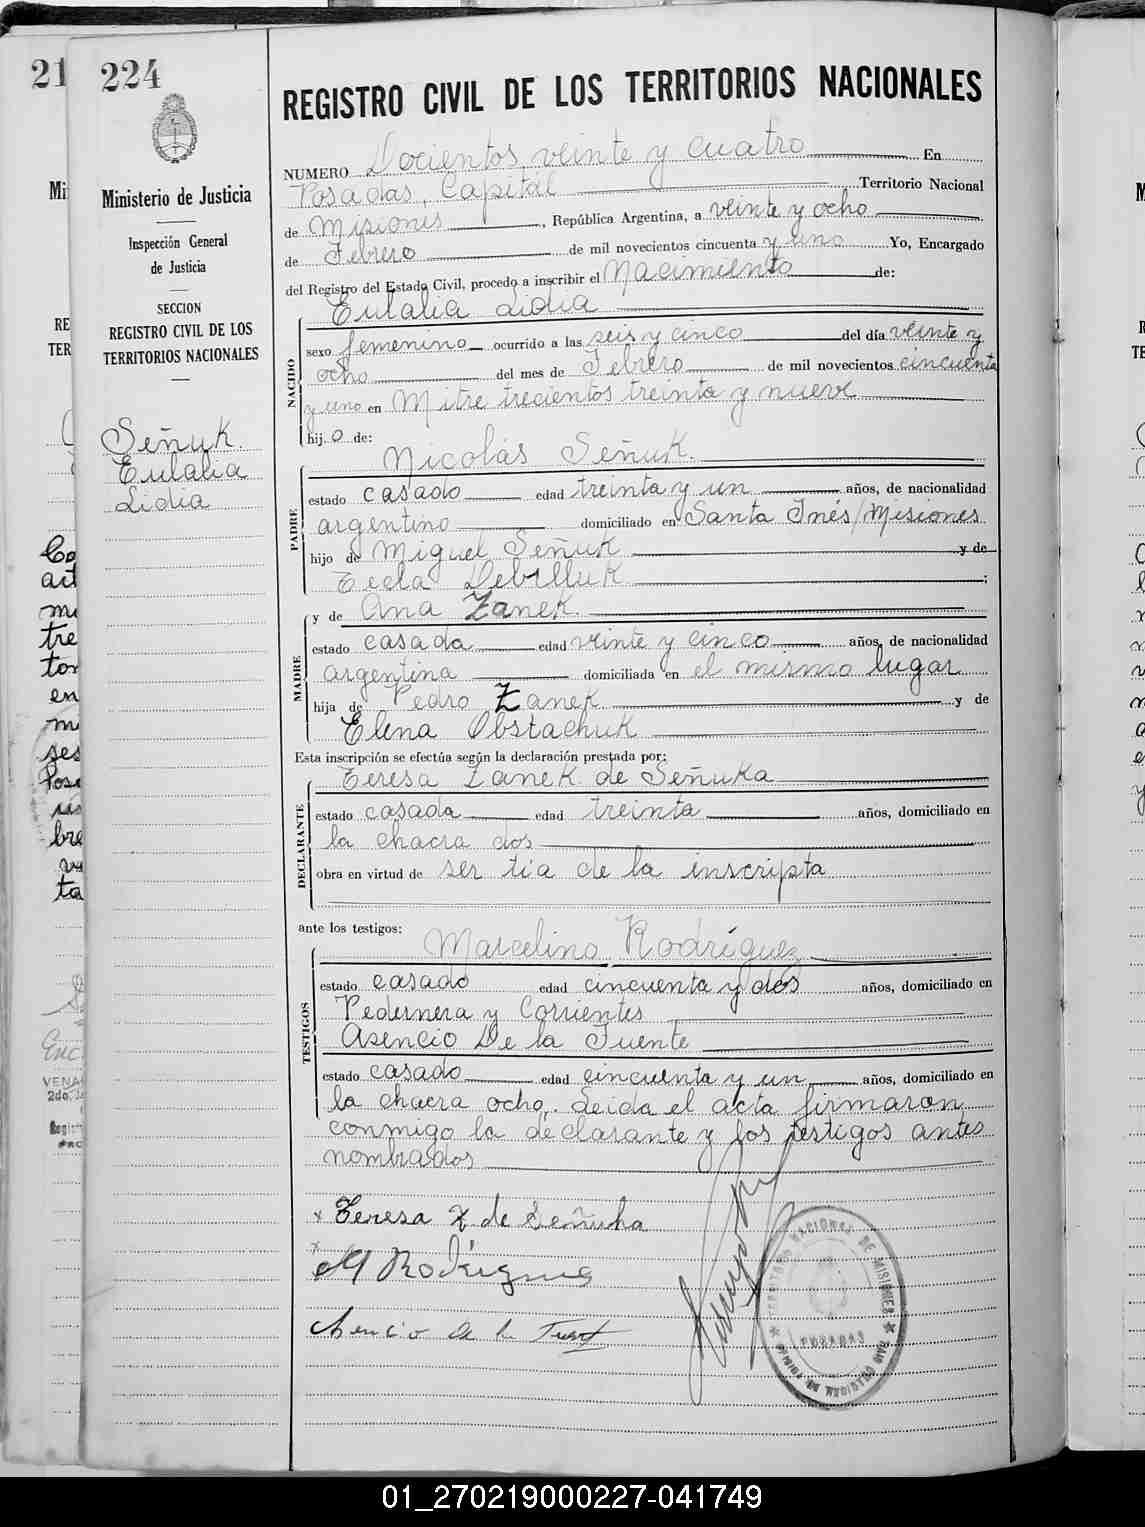 21
224
Ministerio de Justicia
Inspección General
de Justicia
SECCION
REGISTRO CIVIL DE LOS
TERRITORIOS NACIONALES
Señuk
Eulalia
Lidia
REGISTRO CIVIL DE LOS TERRITORIOS NACIONALES
NUMERO Docientos veinte y cuatro En
Posadas, Capital Territorio Nacional
de Misiones, República Argentina, a veinte y ocho
de Febrero de mil novecientos cincuenta y uno Yo, Encargado
del Registro del Estado Civil, procedo a inscribir el Nacimiento de:
NACIDO
Eulalia Lidia
sexo femenino ocurrido a las seis y cinco del día veinte y
ocho del mes de Febrero de mil novecientos cincuenta
y uno en Mitre trecientos treinta y nueve
hij.o de:
PADRE
Nicolás Señuk.
estado casado edad treinta y un años, de nacionalidad
argentino domiciliado en Santa Inés/Misiones
hijo de Miguel Señuk y de
Tecla Debilluk;
MADRE
y de Ana Zanek.
estado casada edad veinte y cinco años, de nacionalidad
argentina domiciliada en el mismo lugar
hija de Pedro Zanek y de
Elena Obstachuk
Esta inscripción se efectúa según la declaración prestada por:
DECLARANTE
Teresa Zanek de Señuka
estado casada edad treinta años, domiciliado en
la chacra dos
obra en virtud de ser tia de la inscripta
ante los testigos:
TESTIGOS
Marcelino Rodríguez
estado casado edad cincuenta y dos años, domiciliado en
Pedernera y Corrientes
Asencio De la Fuente
estado casado edad cincuenta y un años, domiciliado en
la chacra ocho. Leida el acta firmaron
conmigo la declarante y los testigos antes
nombrados
x Teresa Z de Señuka
x M Rodriguez
Asencio de la Fuente
TERRITORIO NACIONAL DE MISIONES
POSADAS
01_270219000227-041749